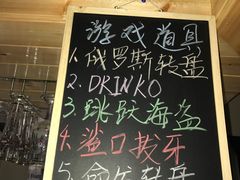 游戏道具
1.俄罗斯转盘
2.DRINKO
3.跳跃海盗
4.鲨口拔牙
5.命运转盘